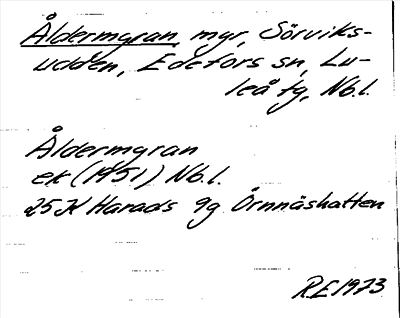 Åldermgran, mgr, Sörviks-
udden, Edefors sn, Lu-
leå tg, Nb.l.
Åldermgran
ek (1951) Nb.l.
25K Harads 9g Örnnäshatten
R.E 1973